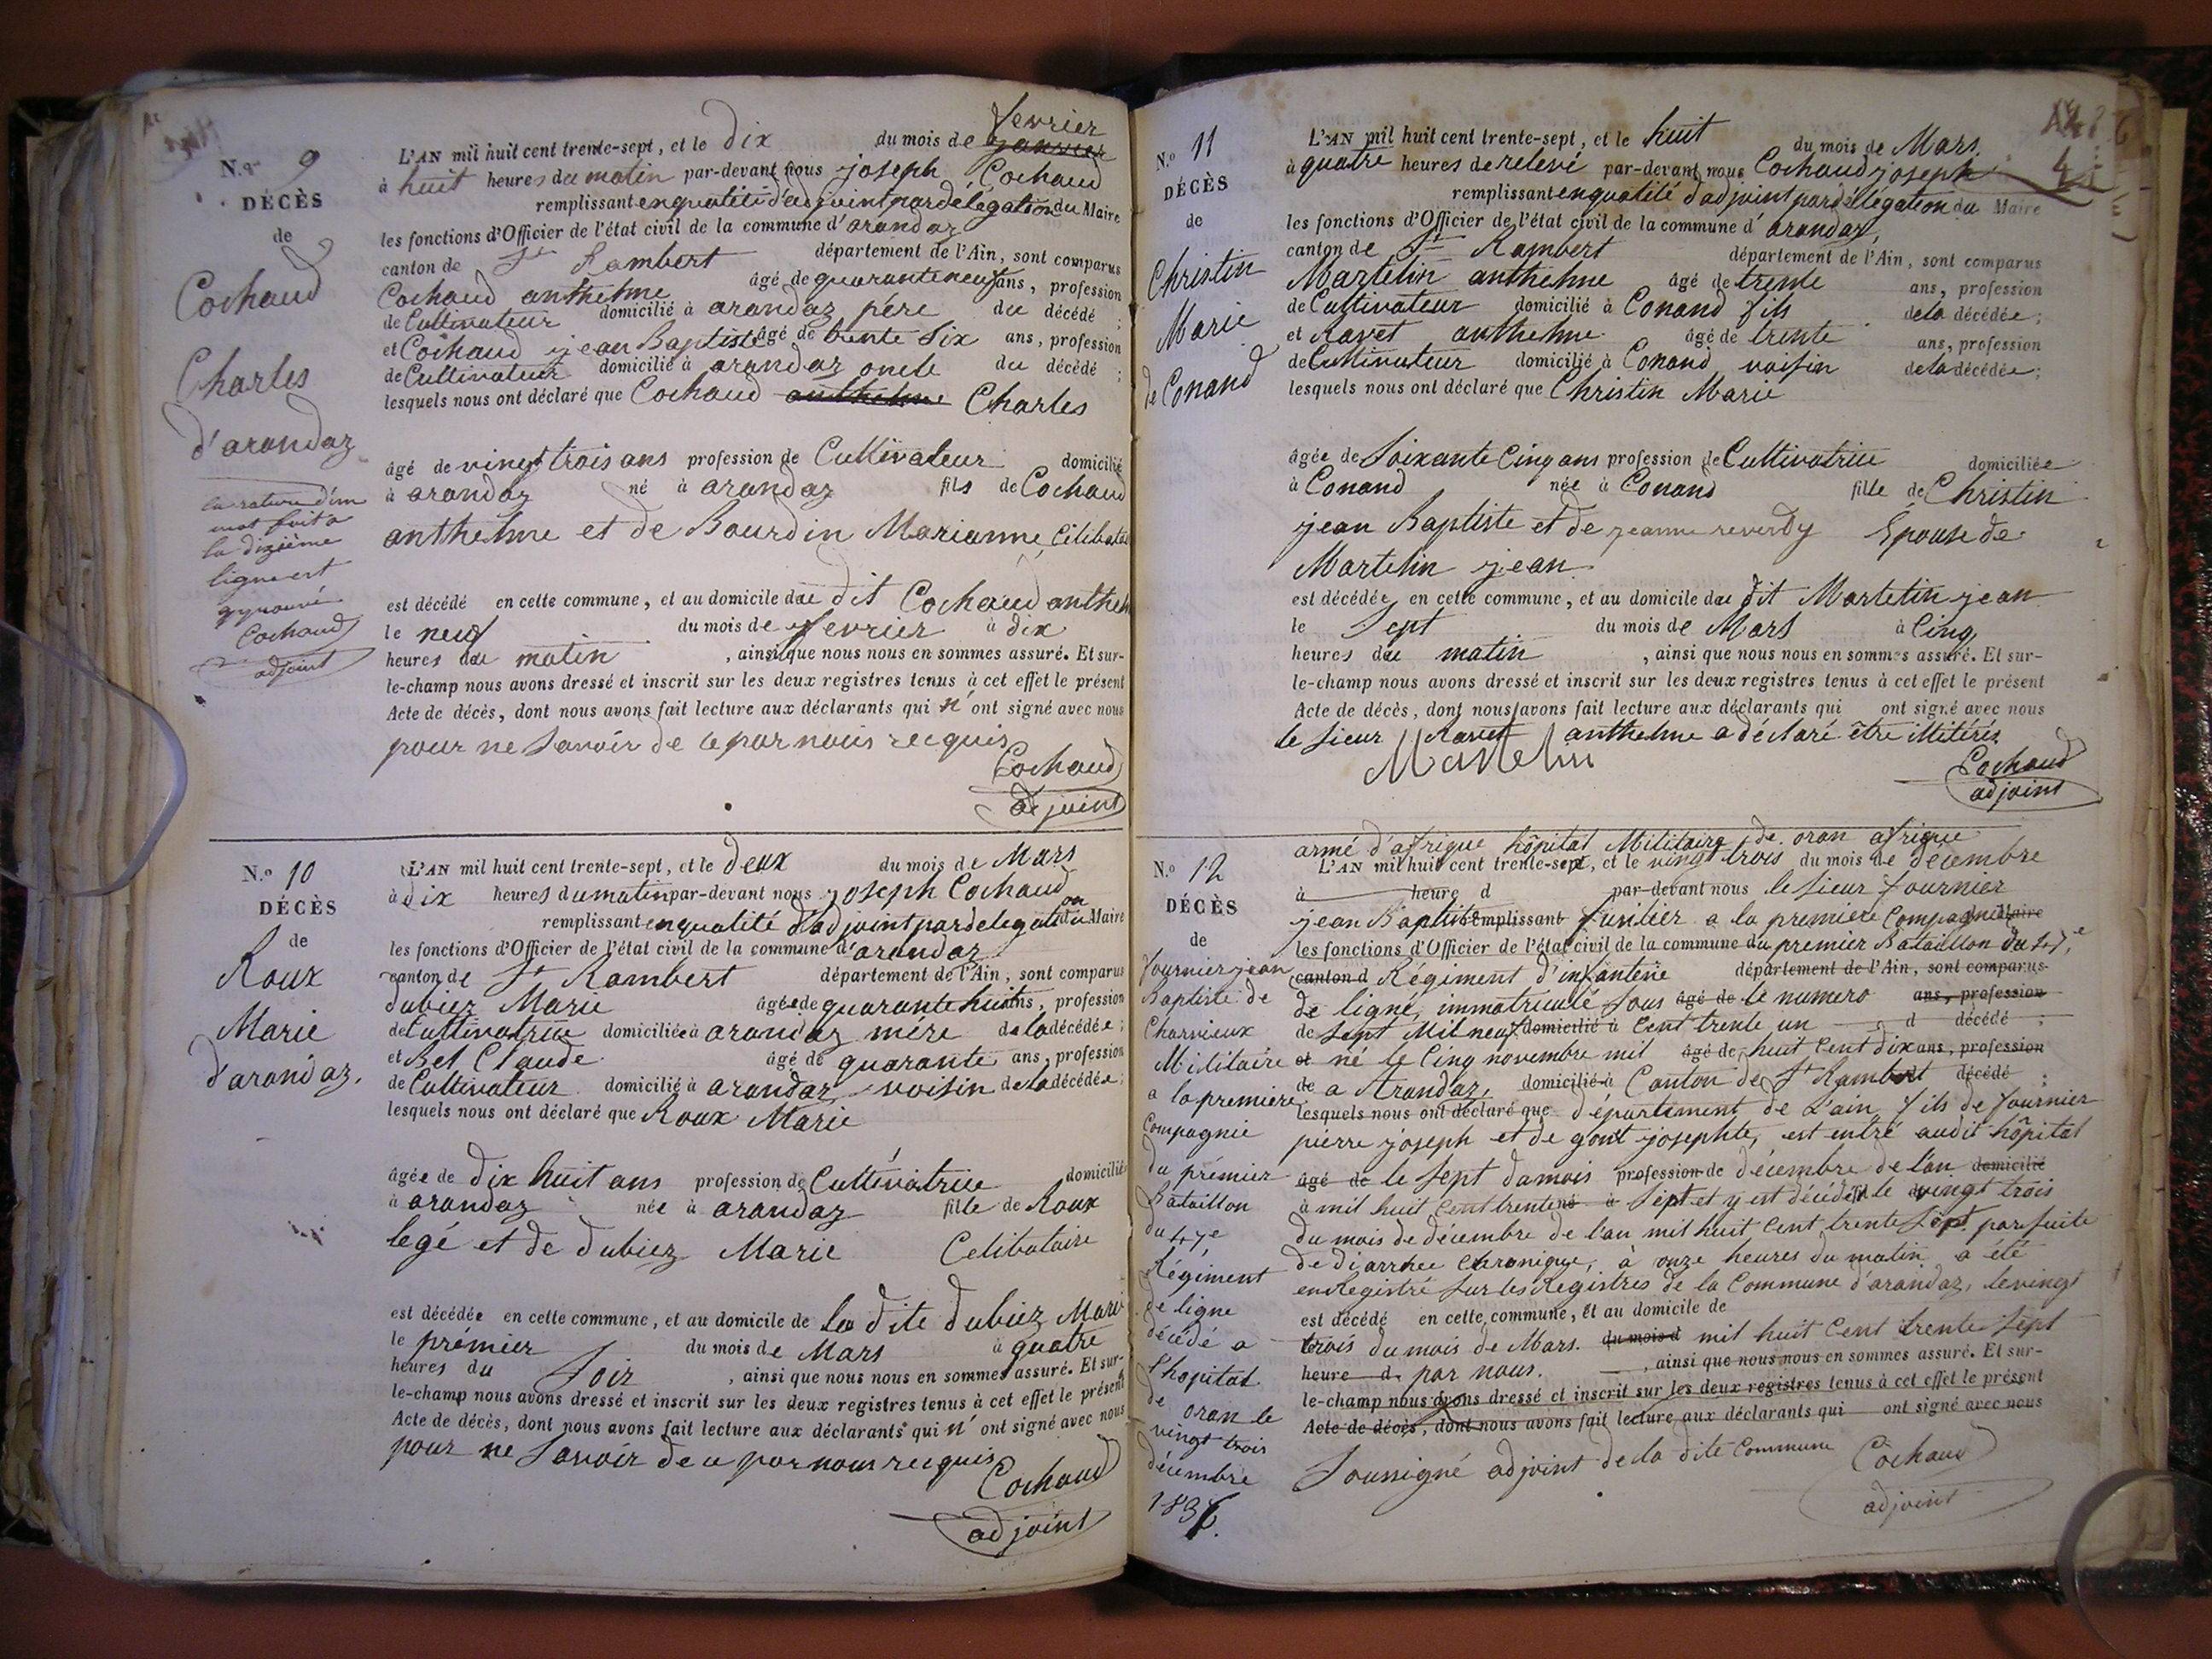 N.º 9
DÉCÈS
de
Cochaud
Charles
d'arandaz
la rature d'un
mot fait a
la dizième
ligne est
approuvé
Cochaud
adjoint
L'AN mil huit cent trente-sept, et le dix du mois de janvier fevrier
à huit heures du matin par-devant nous joseph Cochaud
remplissant en qualité d'adjoint par délégation du Maire
les fonctions d'Officier de l'état civil de la commune d'arandaz
canton de St Rambert département de l'Ain, sont comparus
Cochaud anthelme âgé de quarante neuf ans, profession
de Cultivateur domicilié à arandaz père du décédé ;
et Cochaud jean Baptiste âgé de trente six ans, profession
de Cultivateur domicilié à arandaz oncle du décédé ;
lesquels nous ont déclaré que Cochaud anthelme Charles
âgé de vingt trois ans profession de Cultivateur domicilié
à arandaz né à arandaz fils de Cochaud
anthelme et de Bourdin Marianne, Célibatai
est décédé en cette commune, et au domicile du dit Cochaud anthel
le neuf du mois de fevrier à dix
heures du matin , ainsi que nous nous en sommes assuré. Et sur-
le-champ nous avons dressé et inscrit sur les deux registres tenus à cet effet le présent
Acte de décès, dont nous avons fait lecture aux déclarants qui n'ont signé avec nous
pour ne savoir de ce par nous requis
Cochaud
adjoint
N.º 10
DÉCÈS
de
Roux
Marie
d'arandaz.
L'AN mil huit cent trente-sept, et le deux du mois de Mars
à dix heures du matin par-devant nous joseph Cochaud
remplissant en qualité d'adjoint par delegation du Maire
les fonctions d'Officier de l'état civil de la commune d'arandaz
canton de St Rambert département de l'Ain, sont comparus
dubiez Marie âgée de quarante huit ans, profession
de Cultivatrice domiciliée à arandaz mère de la décédée ;
et Bel Claude âgé de quarante ans, profession
de Cultivateur domicilié à arandaz voisin de la décédée ;
lesquels nous ont déclaré que Roux Marie
âgée de dix huit ans profession de Cultivatrice domicilié
à arandaz née à arandaz fille de Roux
legé et de dubiez Marie Celibataire
est décédée en cette commune, et au domicile de la dite dubiez Marie
le prémier du mois de Mars à quatre
heures du soir , ainsi que nous nous en sommes assuré. Et sur-
le-champ nous avons dressé et inscrit sur les deux registres tenus à cet effet le présent
Acte de décès, dont nous avons fait lecture aux déclarants qui n'ont signé avec nous
pour ne savoir de ce par nous requis
Cochaud
adjoint
4
N.º 11
DÉCÈS
de
Christin
Marie
de Conand
L'AN mil huit cent trente-sept, et le huit du mois de Mars
à quatre heures de relevé par-devant nous Cochaud joseph
remplissant en qualité d'adjoint par délégation du Maire
les fonctions d'Officier de l'état civil de la commune d'arandaz,
canton de St Rambert département de l'Ain, sont comparus
Martelin anthelme âgé de trente ans, profession
de Cultivateur domicilié à Conand fils de la décédée ;
et Ravet anthelme âgé de trente ans, profession
de Cultivateur domicilié à Conand voisin de la décédée ;
lesquels nous ont déclaré que Christin Marie
âgée de Soixante Cinq ans profession de Cultivatrice domiciliée
à Conand née à Conand fille de Christin
jean Baptiste et de jeanne reverdy Épouse de
Martelin jean
est décédée en cette commune, et au domicile du dit Martelin jean
le Sept du mois de Mars à Cinq
heures du matin , ainsi que nous nous en sommes assuré. Et sur-
le-champ nous avons dressé et inscrit sur les deux registres tenus à cet effet le présent
Acte de décès, dont nous avons fait lecture aux déclarants qui ont signé avec nous
le sieur Ravet anthelme a déclaré être illitérés
Martelin
Cochaud
adjoint
N.º 12
DÉCÈS
de
fournier jean
Baptiste de
Charvieux
Militaire
a la premiere
Compagnie
du prémier
Bataillon
du 47e
Régiment
de ligne
décédé a
l'hopital
de oran le
vingt trois
décembre
1836.
armé d'afrique hôpital Militaire de oran afrique
L'AN mil huit cent trente-sept, et le vingt trois du mois de decembre
à heure d par-devant nous le sieur fournier
jean Baptiste remplissant fusilier a la premiere Compagnie Maire
les fonctions d'Officier de l'état civil de la commune du premier Bataillon du 47e
canton d Régiment d'infanterie département de l'Ain, sont comparus
de ligné, immatriculé sous âgé de le numero ans, profession
de sept Mil neuf domicilié à Cent trente un d décédé ;
et né le Cinq novembre mil âgé de huit Cent dix ans, profession
de a Arandaz, domicilié à Canton de St Rambert décédé ;
lesquels nous ont déclaré que département de L'ain fils de fournier
pierre joseph et de gont josephte, est entré audit hôpital
âgé de le sept du mois profession de décembre de l'an domicilié
à mil huit Cent trente né à Sept et y est décédé le vingt trois
du mois de décembre de l'an mil huit Cent trente sept par suite
de diarrhée Chronique, à onze heures du matin a été
enRegistré sur les Registres de la Commune d'arandaz, le vingt
est décédé en cette commune, et au domicile de
trois du mois de Mars. du mois d mil huit Cent trente Sept
heure d par nous. , ainsi que nous nous en sommes assuré. Et sur-
le-champ nous avons dressé et inscrit sur les deux registres tenus à cet effet le présent
Acte de décès, dont nous avons fait lecture aux déclarants qui ont signé avec nous
Soussigné adjoint de la dite Commune Cochaud
adjoint